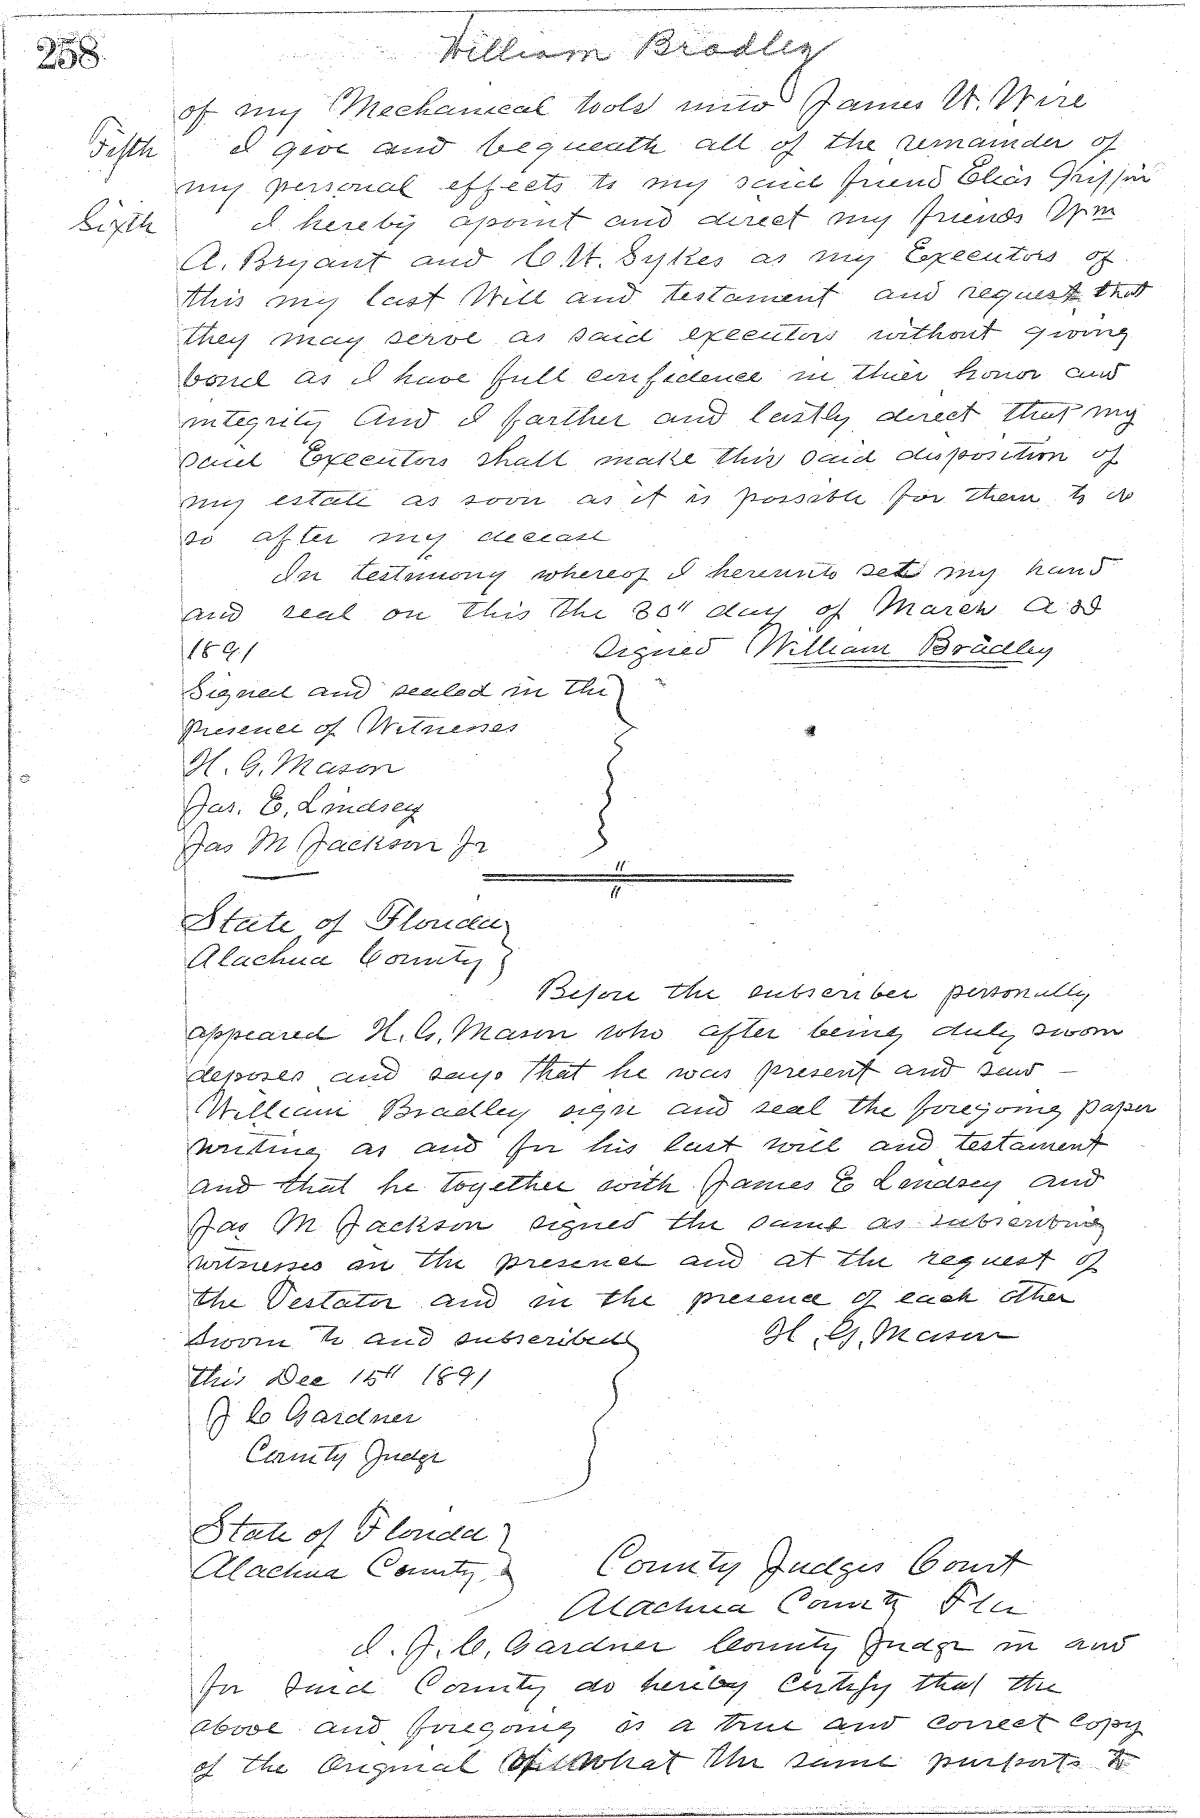 258
William Bradley
of my Mechanical tools unto James W. Wire
Fifth I give and bequeath all of the remainder of
my personal effects to my said friend Elias Griffin
Sixth I hereby apoint and direct my friends Wm
A. Bryant and C. W. Sykes as my Executors of
this my last Will and testament and request that
they may serve as said executors without giving
bond as I have full confidence in thier honor and
integrity And I farther and lastly direct that my
said Executors shall make this said disposition of
my estate as soon as it is possible for them to do
so after my decease
In testimony whereof I hereunto set my hand
and seal on this the 30" day of March A D
1891 Signed William Bradley
Signed and sealed in the
Presence of Witnesses
H. G. Mason
Jas. E. Lindsey
Jas M Jackson Jr
State of Florida
Alachua County
Before the subscriber personally
appeared H. G. Mason who after being duly sworn
deposes and says that he was present and saw
William Bradley sign and seal the foregoing paper
writing as and for his last will and testament
and that he together with James E Lindsey and
Jas M Jackson signed the same as subscribing
witnesses in the presence and at the request of
the Testator and in the presence of each other
Sworn to and subscribed H. G. Mason
this Dec 15" 1891
J C Gardner
County Judge
State of Florida
Alachua County
County Judges Court
Alachua County Fla
I. J. C. Gardner County Judge in and
for said County do hereby certify that the
above and foregoing is a true and correct copy
of the Original of what the same purports to